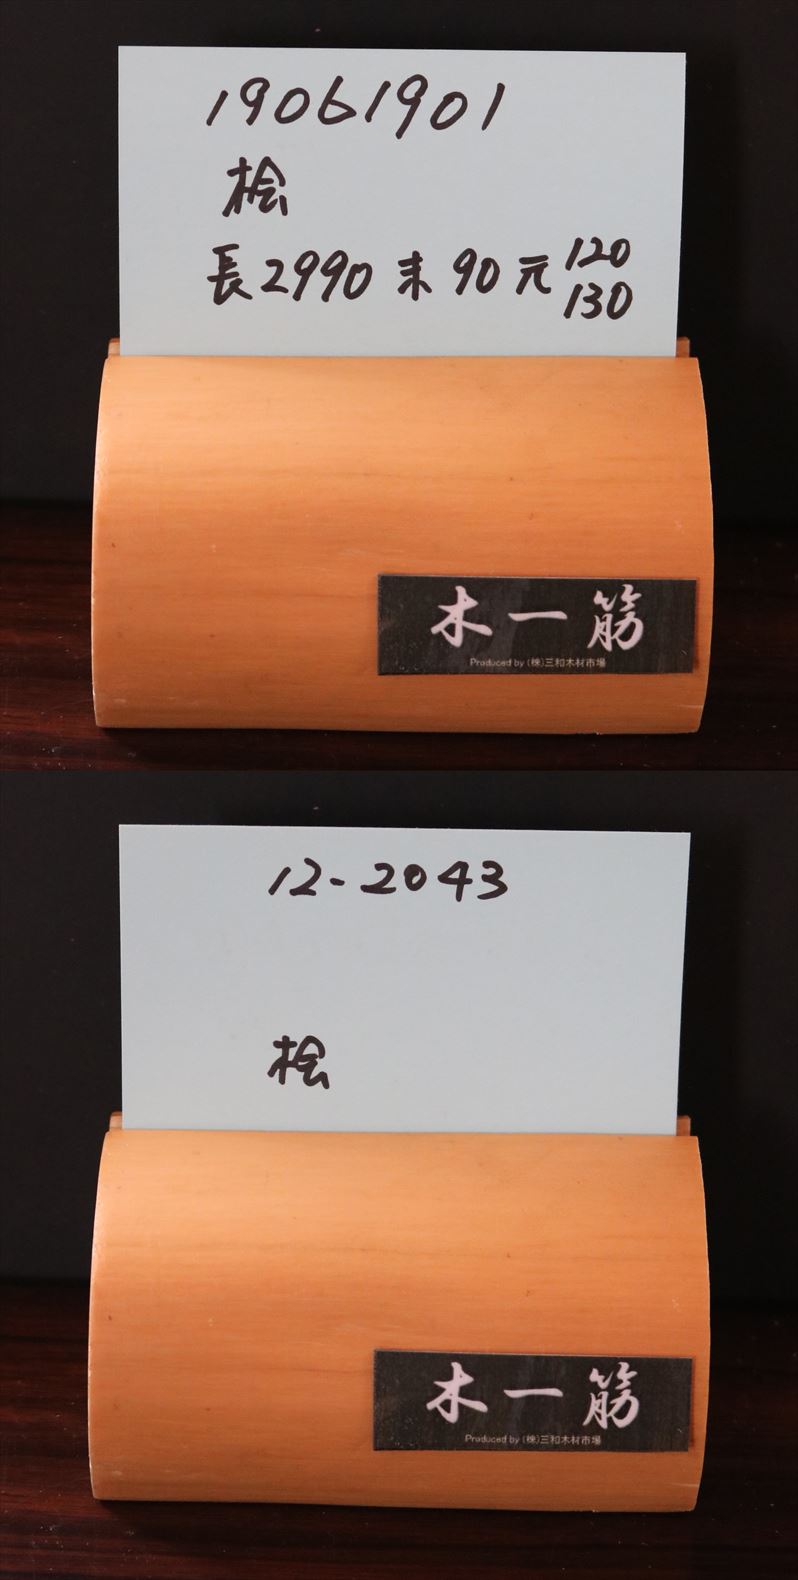 19061901
桧
長2990 末 90 元 120
130
木一筋
Produced by (株)三和木材市場
12-2043
桧
木一筋
Produced by (株)三和木材市場